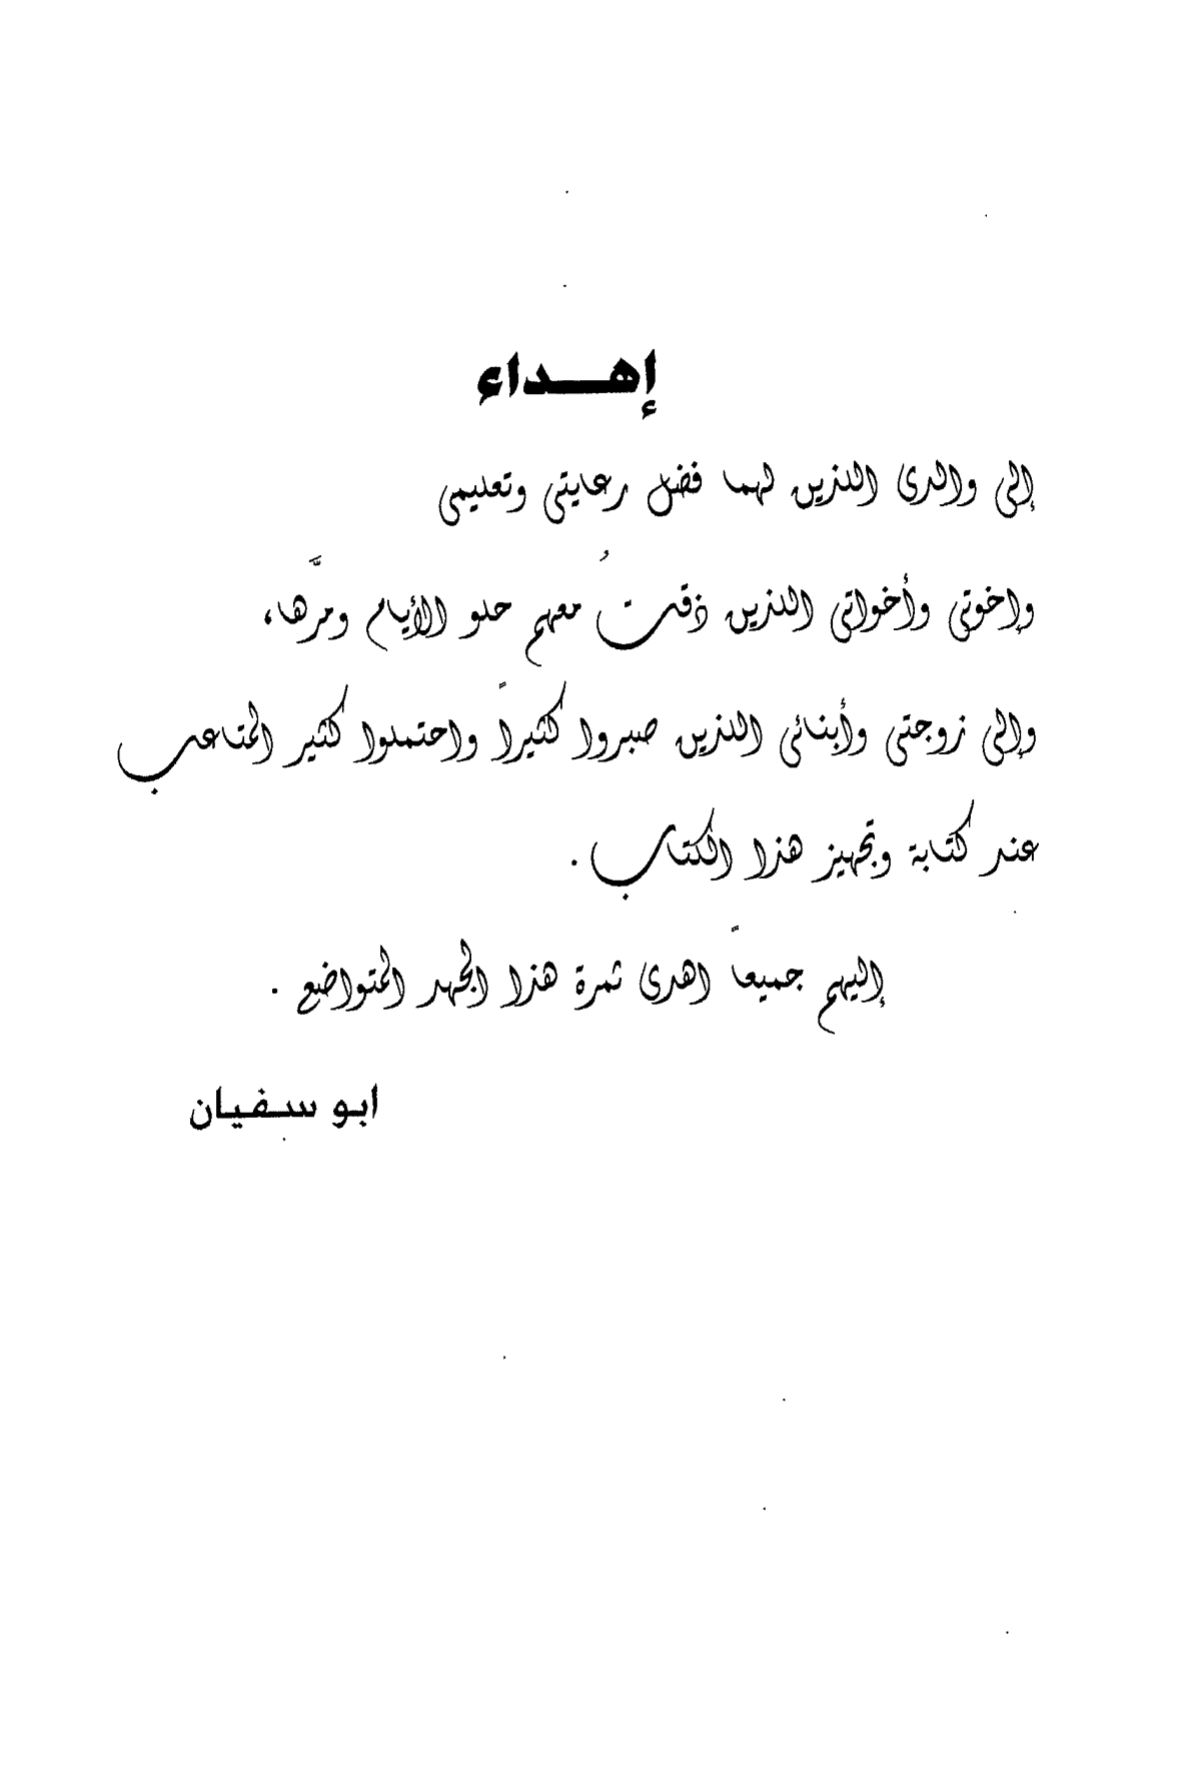 إهــداء
إلى والدى اللذين لهما فضل رعايتى وتعليمى
وإخوتى وأخواتى الذين ذقتُ معهم حلو الأيام ومرَّها،
وإلى زوجتى وأبنائى الذين صبروا كثيراً واحتملوا كثير المتاعب
عند كتابة وتجهيز هذا الكتاب .
إليهم جميعاً اهدى ثمرة هذا الجهد المتواضع .
ابو سفيان